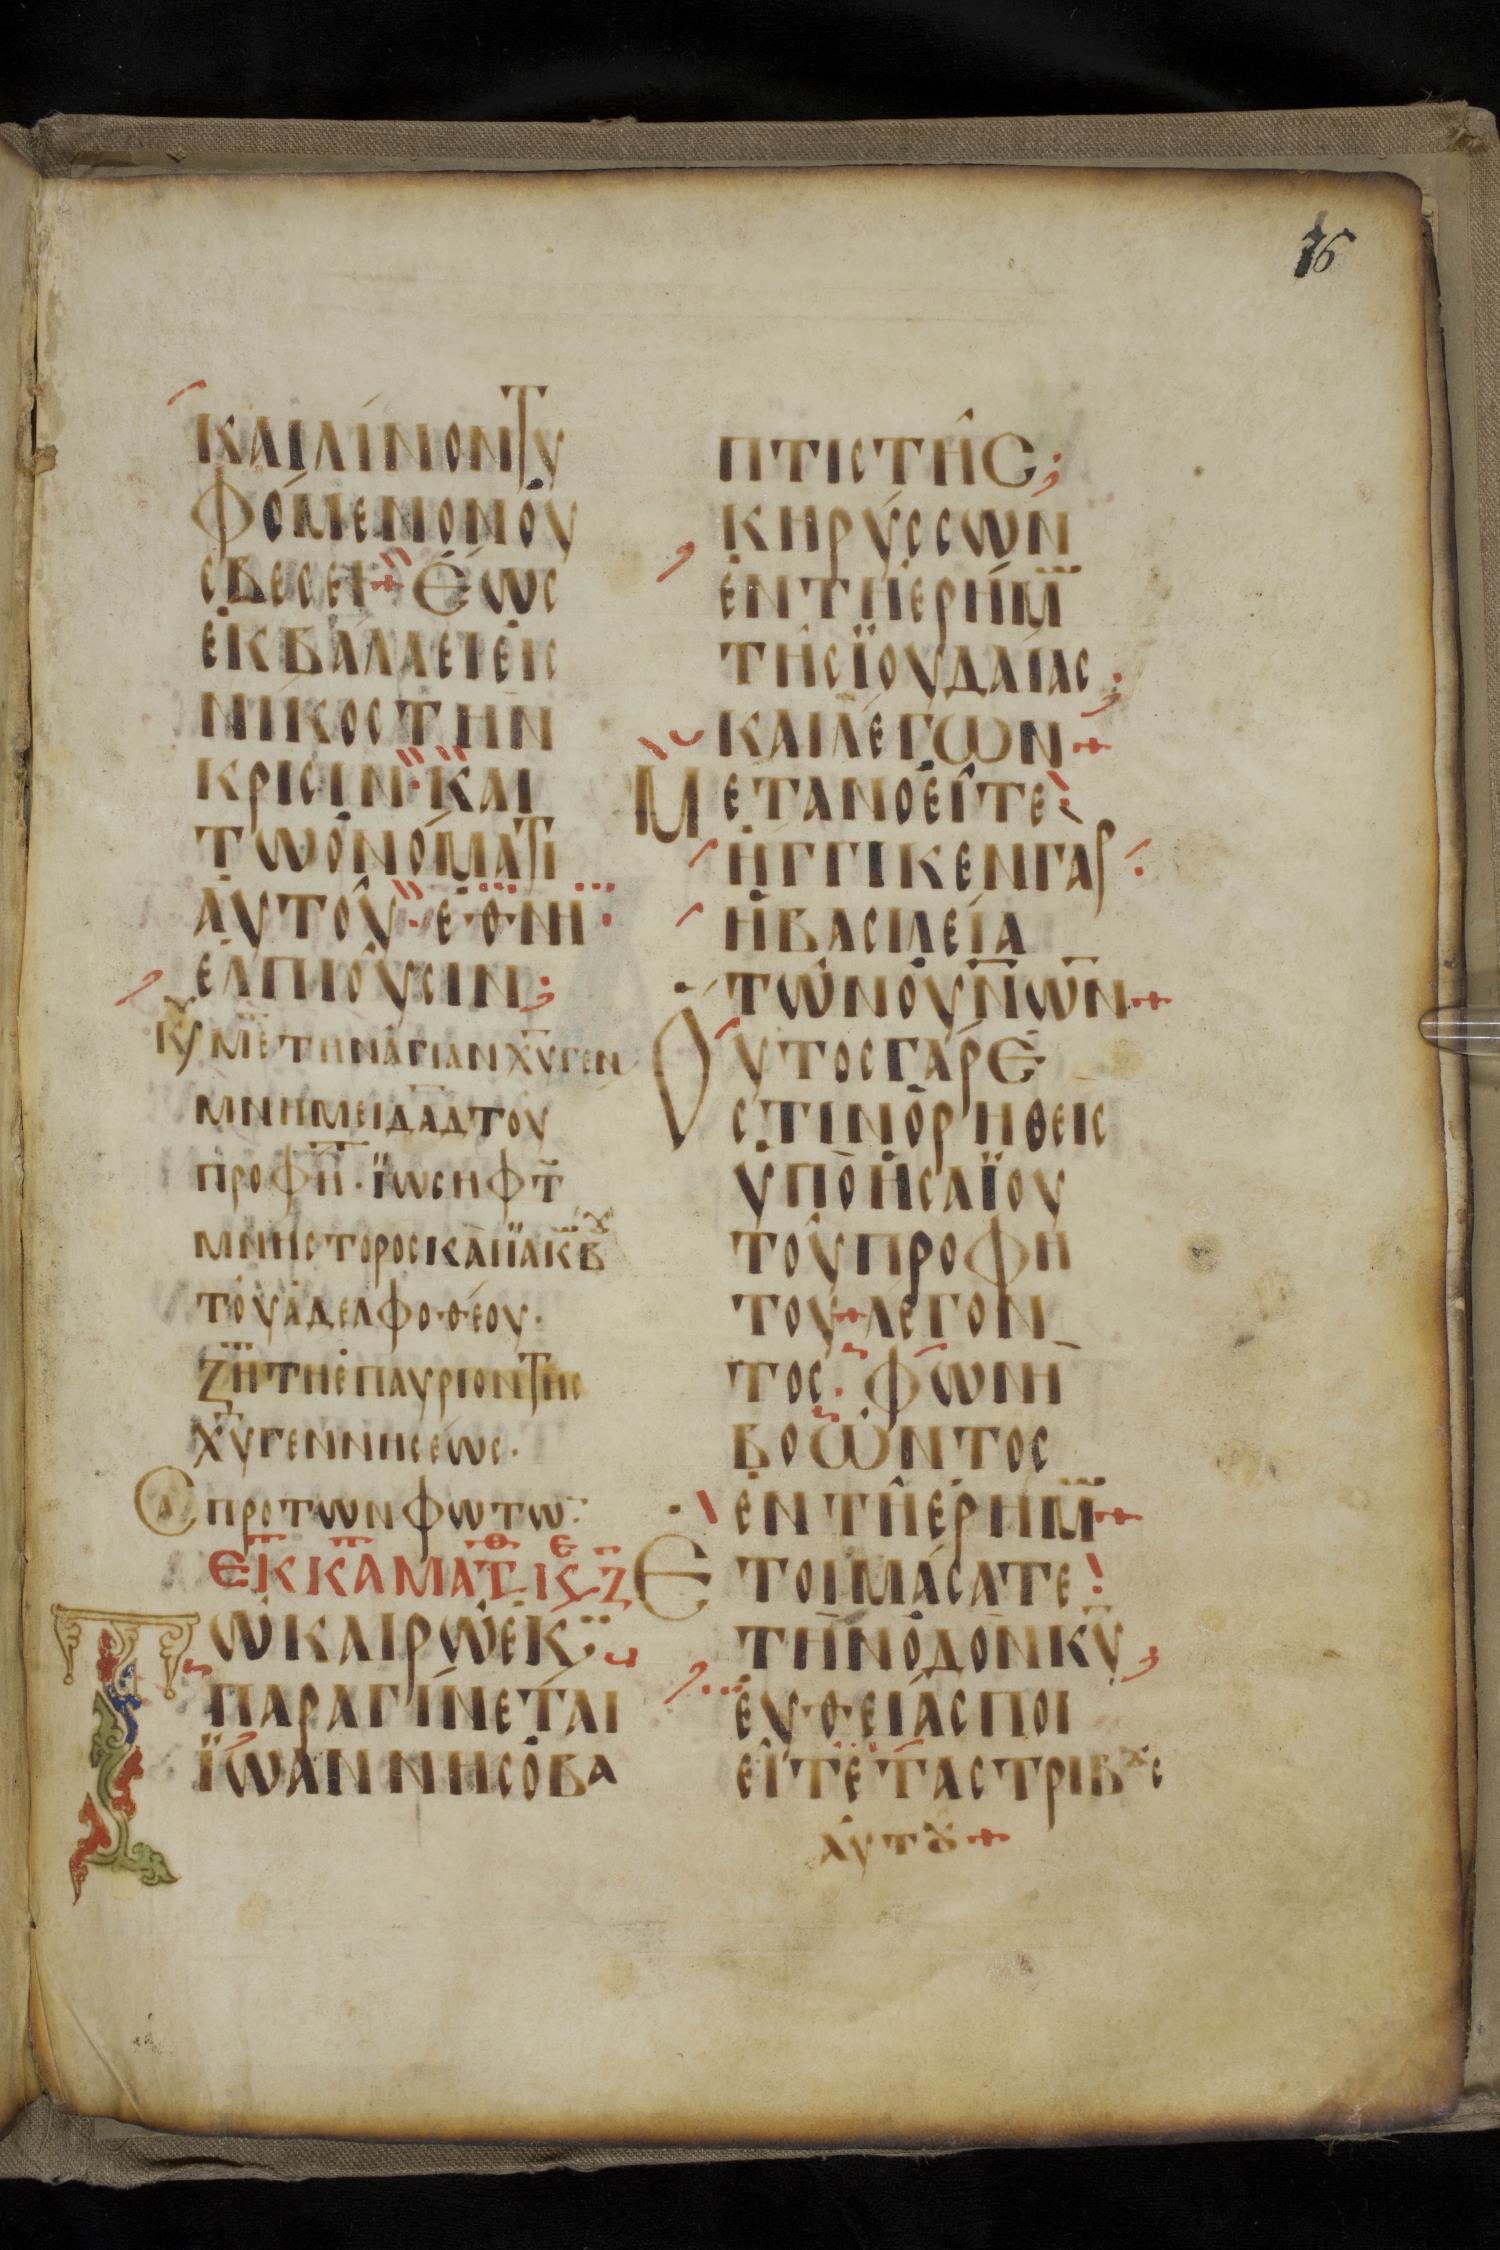 76
ΚΑΙ ΛΙΝΟΝ ΤΥ
ΦΟΜΕΝΟΝ ΟΥ
ΣΒΕΣΕΙ + ΕΩΣ
ΕΚΒΑΛΛΕΙ ΕΙΣ
ΝΙΚΟΣ ΤΗΝ
ΚΡΙΣΙΝ· ΚΑΙ
ΤΩ ΟΝΟΜΑΤΙ
ΑΥΤΟΥ· ΕΘΝΗ
ΕΛΠΙΟΥΣΙΝ;
ΜΕΤΑ ΤΗΝ ΑΓΙΑΝ ΧΥ ΓΕΝ
ΜΝΗΜΕΙ ΔΑΔ ΤΟΥ
ΠΡΟΦΗΤ· ΪΩΣΗΦ Τ
ΜΝΗΣΤΟΡΟΣ ΚΑΙ ΪΑΚΒ
ΤΟΥ ΑΔΕΛΦΟΘΕΟΥ·
ΖΗΤ ΤΗ ΕΠΑΥΡΙΟΝ ΤΗΣ
ΧΥ ΓΕΝΝΗΣΕΩΣ·
ΣΑ ΠΡΟ ΤΩΝ ΦΩΤΩ
ΕΚ Κ ΑΜΑΤΘ ΚΕ Ζ
ΤΩ ΚΑΙΡΩ ΕΚ
ΠΑΡΑΓΙΝΕΤΑΙ
ΪΩΑΝΝΗΣ Ο ΒΑ
ΠΤΙΣΤΗΣ;
ΚΗΡΥΣΣΩΝ
ΕΝ ΤΗ ΕΡΗΜ
ΤΗΣ ΪΟΥΔΑΙΑΣ;
ΚΑΙ ΛΕΓΩΝ +
ΜΕΤΑΝΟΕΙΤΕ
ΗΓΓΙΚΕΝ ΓΑΡ
Η ΒΑΣΙΛΕΙΑ
ΤΩΝ ΟΥΝΩΝ +
ΟΥΤΟΣ ΓΑΡ Ε
ΣΤΙΝ Ο ΡΗΘΕΙΣ
ΥΠΟ ΗΣΑΪΟΥ
ΤΟΥ ΠΡΟΦΗ
ΤΟΥ + ΛΕΓΟΝ
ΤΟΣ· ΦΩΝΗ
ΒΟΩΝΤΟΣ
ΕΝ ΤΗ ΕΡΗΜ +
ΕΤΟΙΜΑΣΑΤΕ
ΤΗΝ ΟΔΟΝ ΚΥ,
ΕΥΘΕΙΑΣ ΠΟΙ
ΕΙΤΕ ΤΑΣ ΤΡΙΒȢΣ
ΑΥΤȢ +